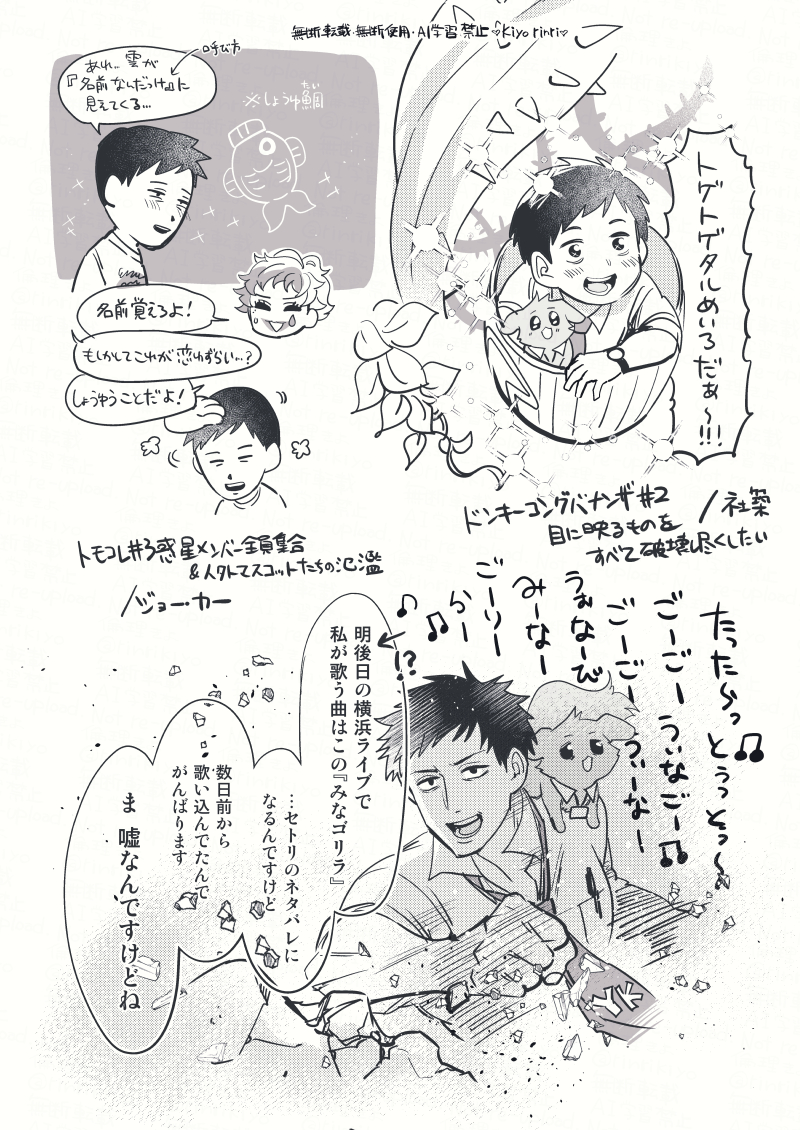 無断転載・無断使用・AI学習禁止♡Kiyo rinri♡
呼び方
あれ…雲が
『名前なんだっけ』に
見えてくる…
※しょうゆ鯛
たい
名前覚えろよ!
もしかしてこれが恋わずらい…?
しょうゆうことだよ!
トモコレ#3惑星メンバー全員集合
&人外マスコットたちの氾濫
/ジョー・カー
トゲトゲタルめいろだぁ〜!!!
ドンキーコングバナンザ#2
/社築
目に映るものを
すべて破壊し尽くしたい
たったら〜っ とぅっとぅっ〜♫
ごーごー うぃなごー♫
ごーごー うぃーなー
うぉなーび
みーなー
ごーりー
らー
♪♫
!?
明後日の横浜ライブで
私が歌う曲はこの『みなゴリラ』
…セトリのネタバレに
なるんですけど
数日前から
歌い込んでたんで
がんばります
ま 嘘なんですけどね
YK